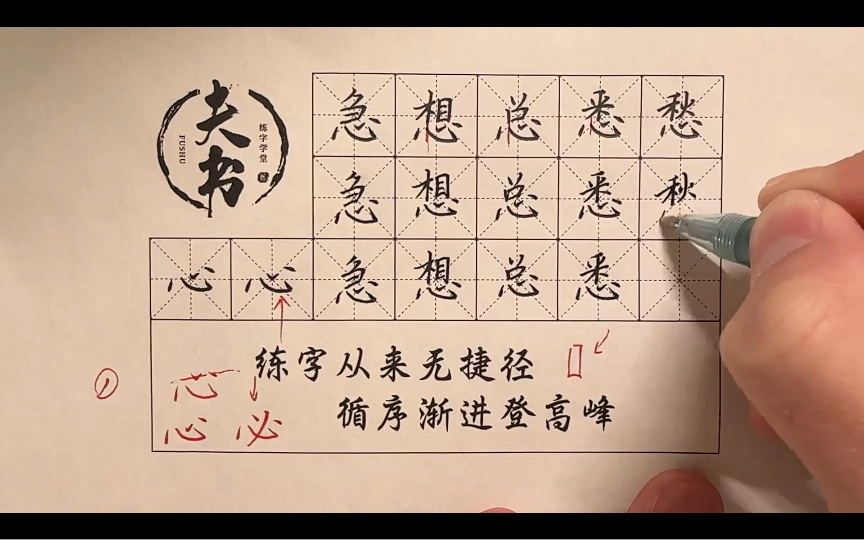 夫书
练字学堂
FUSHU
急 想 总 悉 愁
急 想 总 悉 秋
心 心 急 想 总 悉
练字从来无捷径
循序渐进登高峰
①
心
心 必